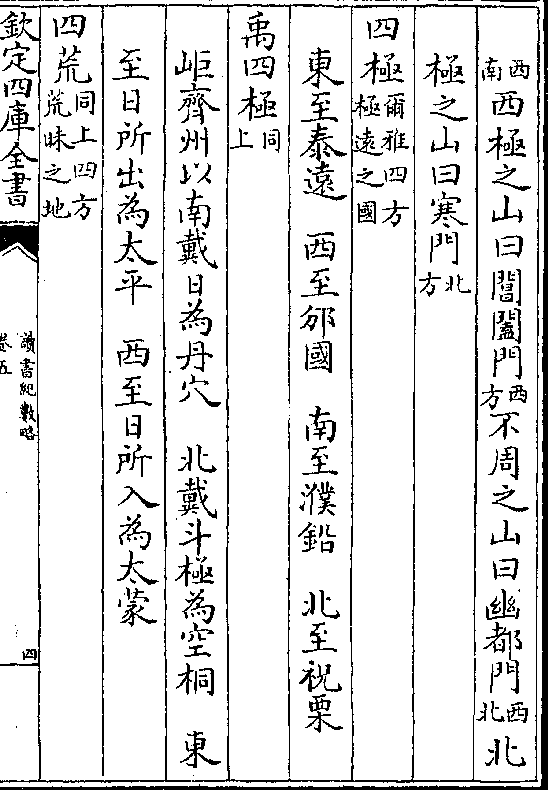 西南西極之山曰閶闔門西方不周之山曰幽都門西北北
極之山曰寒門北方
四極爾雅四方極遠之國
東至泰遠　西至邠國　南至濮鉛　北至祝栗
禹四極同上
岠齊州以南戴日為丹穴　北戴斗極為空桐　東
至日所出為太平　西至日所入為太蒙
四荒同上四方荒昧之地
欽定四庫全書
讀書紀數略
卷五
四